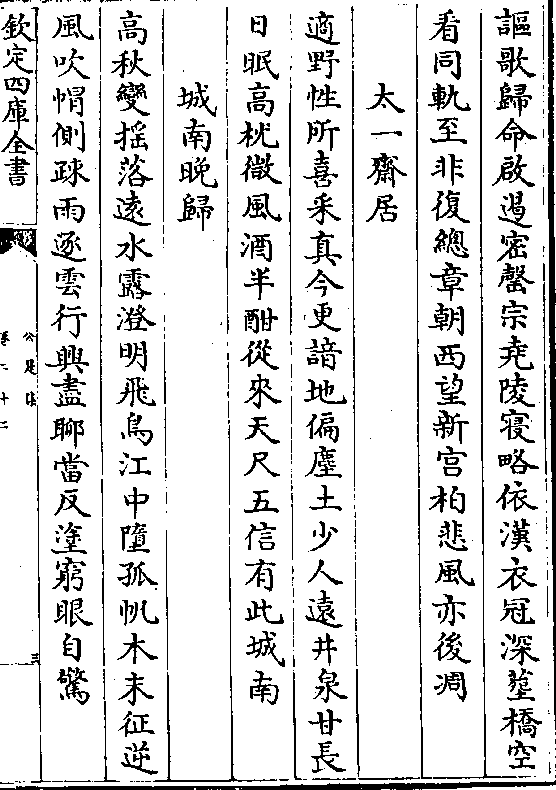 謳歌歸命啟遏密罄宗堯陵寝略依漢衣冠深塟橋空
看同軌至非復總章朝西望新宮柏悲風亦後凋
太一齋居
適野性所喜采真今更諳地偏塵土少人遠井泉甘長
日眠高枕微風酒半酣從來天尺五信有此城南
城南晚歸
高秋變揺落遠水露澄明飛鳥江中墮孤帆木末征逆
風吹㡌側疎雨逐雲行興盡聊當反塗窮眼自驚
欽定四庫全書
公是集
卷二十二
三